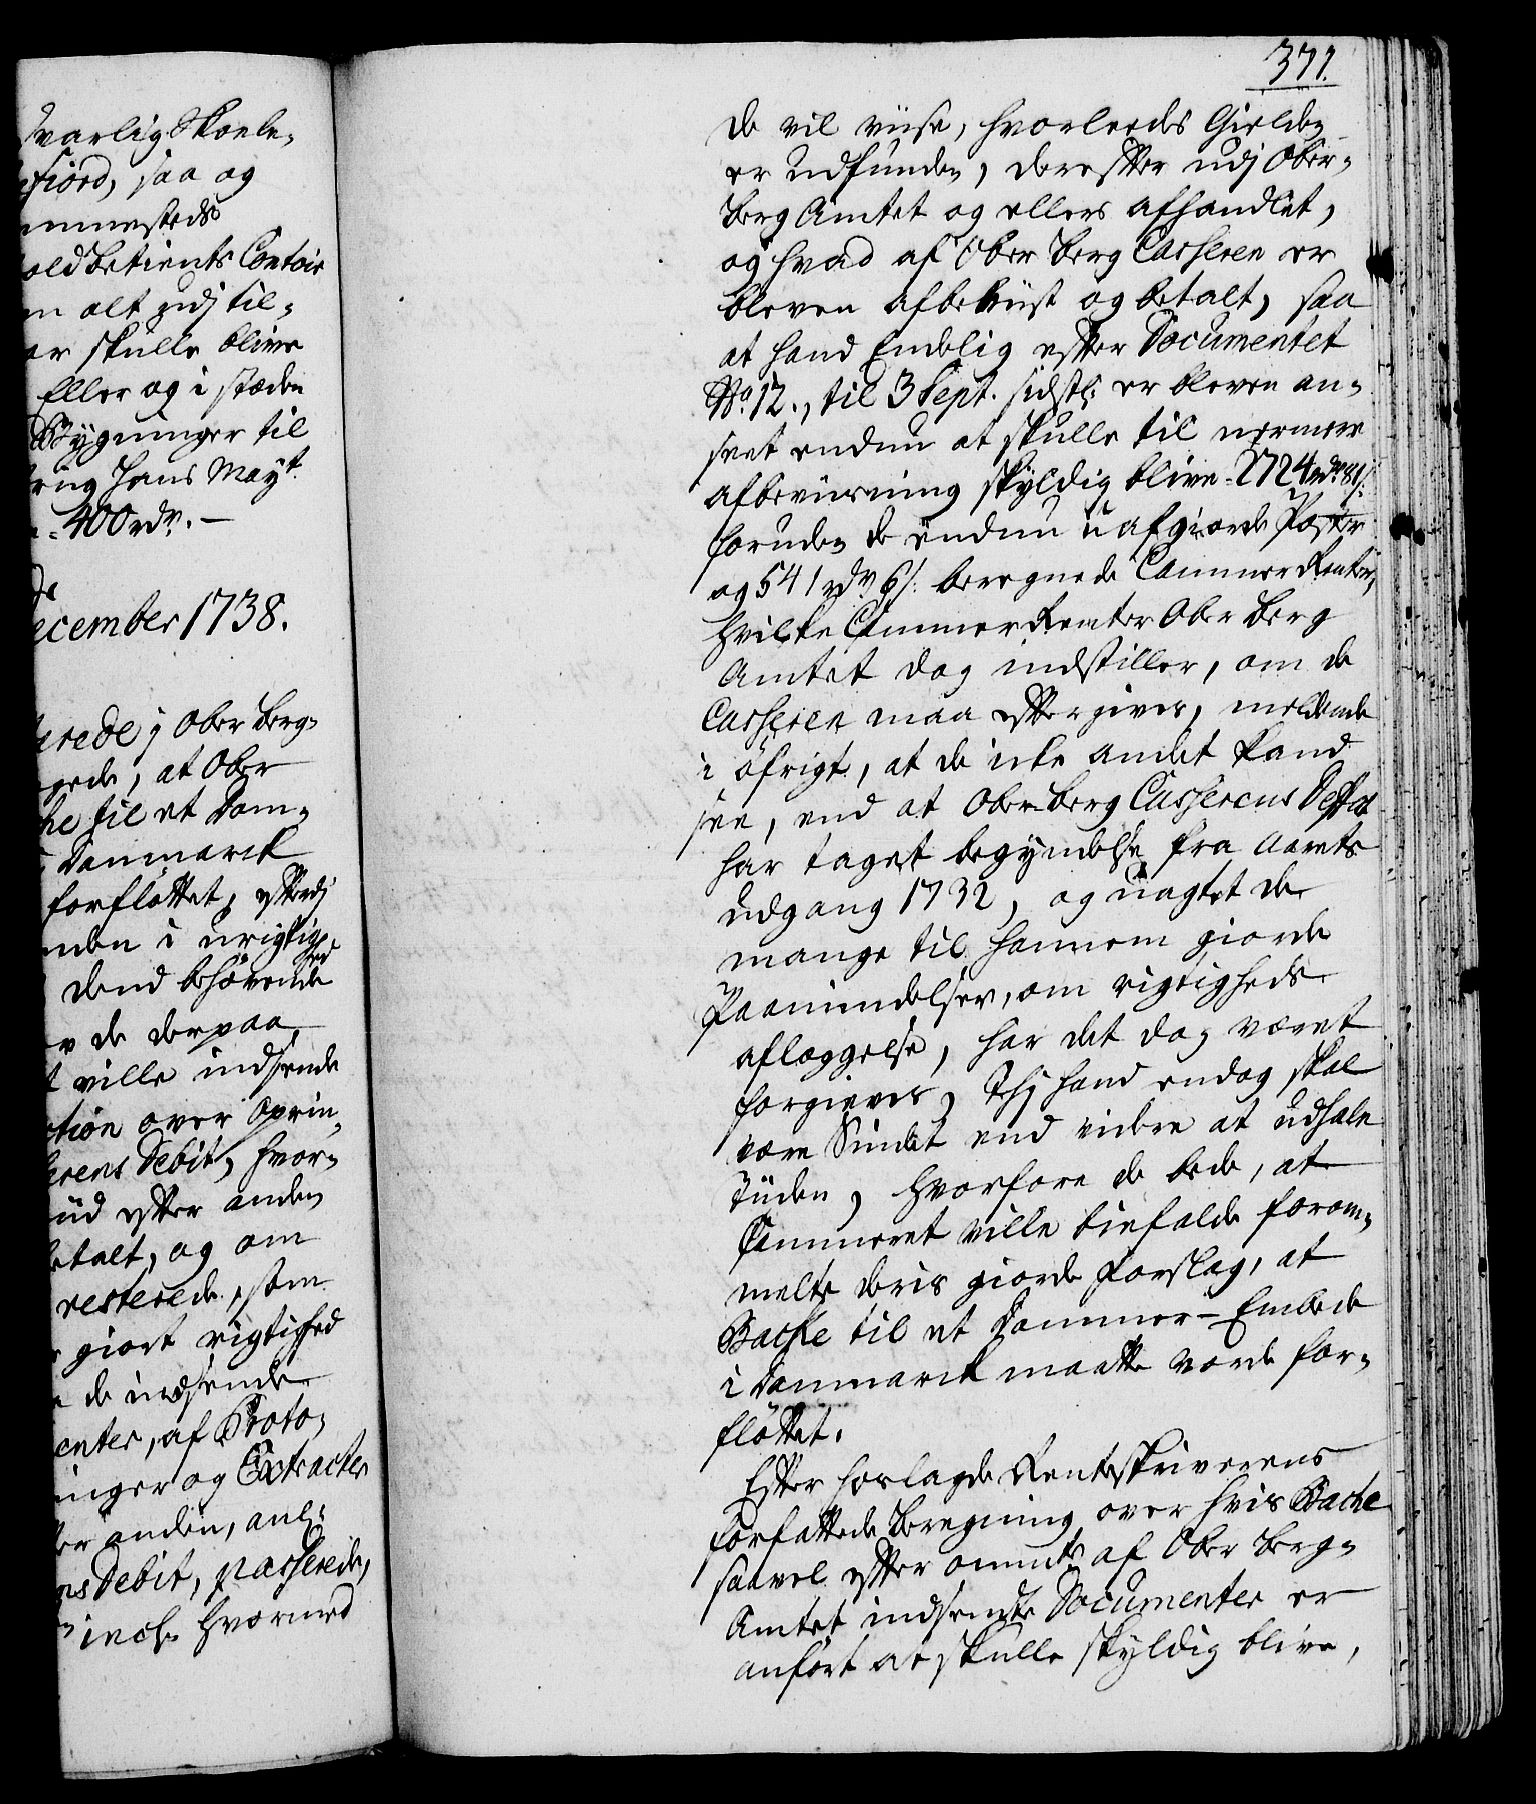 dvarlig Skoele,
fiord, saa og
ammesteds
old betients Contoir
m alt udj til,
ar skulle blive
Eller og i stæden
Bygninger til
rug Hans Mayt
400 rdr. —
de
ecember 1738.
erede j Ober Berg,
gede, at Ober
he til et Dom,
Danmarck
forfløttet, efterdj
nden i urigtighed
dend behøvende
v de derpaa
t ville indsende
ction over Oprin,
erens Debit, hvor,
ud efter anden
betalt, og om
resterede, som
giort rigtighed
de indsende
enter, af Proto,
inger og Extracter
er anden, anl:
ns Debit, passerede,
incl. hvormed
371.
de vil viise, hvorleedes Gielden
er Udfunden, derefter udj Ober,
Berg Amtet og ellers afhandlet,
og hvad af Ober Berg Casseren er
bleven afbeviist og betalt, saa
at hand Endelig efter Documentet
No. 12., til 3 Sept. sidstl: er bleven an,
seet endnu at skulle til nermere
afbeviisning skyldig blive = 2724 rdr 81 s:
foruden de endnu uafgiorde Poster
og 541 rdr 6 s: beregnede Cammer Renter,
hvilke Cammer Renter Ober Berg
Amtet dog indstiller, om de
Casseren maa eftergives, meldende
i øfrigt, at de icke andet kand
see, end at Ober-berg Casserens Defect
har taget begyndelse fra Aarets
Udgang 1732, og uagtet de
mange til hannem giorde
Paamindelser, om rigtigheds
aflæggelse, har det dog været
forgieves, Thj hand endog skal
være Sindet end videre at udhale
Tiiden, hvorfore de bede, at
Cammeret ville biefalde forom,
melte deris giorde Forslag, at
Bache til et Dommer-Embede
i Danmarck maatte vorde for,
fløttet.
Efter hoslagde Renteskriverens
forfattede beregning over hvis Bache
saavel efter ommelte af Ober Berg,
Amtet indsendte Documenter er
anført at skulle skyldig blive,